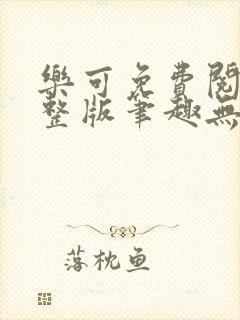 樂可免費閱
整版筆趣無
落枕鱼